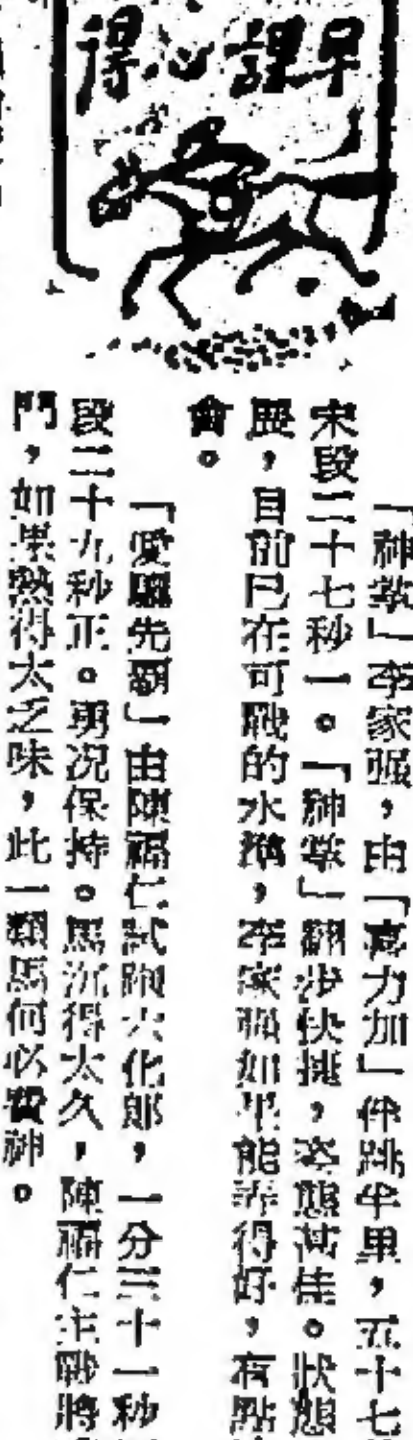 早課心得
「神掌」李家强，由「喜力加」伴跳半里，五十七
末段二十七秒一。「神掌」翻步快捷，姿態甚佳。狀態
展，目前已在可戰的水準，李家強如果能弄得好，有點
會。
「愛驅先霸」由陳福仁試跑六化郎，一分三十一秒
段二十九秒正。勇况保持。馬沉得太久，陳福仁主戰將
門，如果熱得太乏味，此一類馬何必費神。